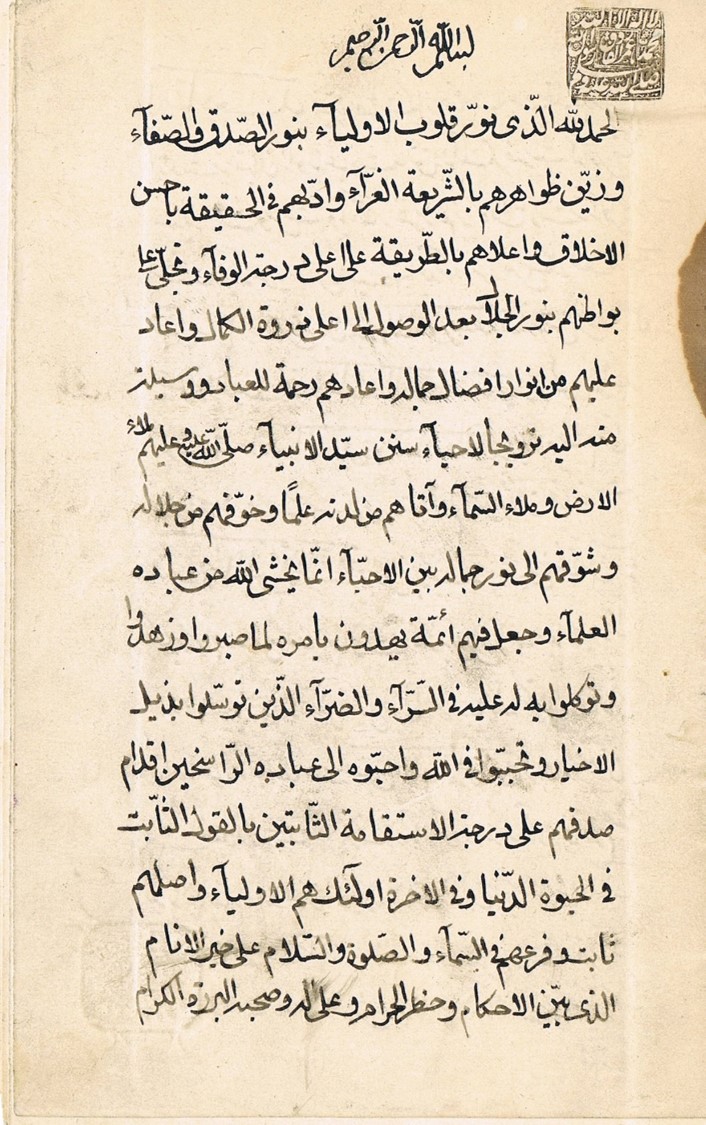 بسم الله الرحمن الرحيم
الحمد لله الّذى نوّر قلوب الاوليآء بنور الصّدق والصّفآء
وزيّن ظواهرهم بالشّريعة الغرّآء وادّبهم فى الحقيقة باحسن
الاخلاق واعلاهم بالطّريقة على اعلى درجة الوفآء وتجلّى على
بواطنهم بنور الجلال بعد الوصول الى اعلى ذروة الكمال واعاد
عليهم من انوار افضال جماله واعادهم رحمة للعباد ووسيلة
منه اليه ترويجا لاحيآء سنن سيّد الانبيآء صلّى الله عليه وعليهم ملاء
الارض وملاء السّمآء وآتاهم من لدنه علمًا وخوّفهم من جلاله
وشوّقهم الى نور جماله بين الاحبّآء انّما يخشى الله من عباده
العلمآء وجعل فيهم ائمّة يهدون بامره لما صبروا وزهدوا
وتوكلوا به له عليه فى السّرّآء والضرّآء الّذين توسّلوا بذيل
الاخيار وتحبّبوا فى الله واحبّوه الى عباده الرّاسخين اقدام
صدقهم على درجة الاستقامة الثّابتين بالقول الثّابت
فى الحيوة الدّنيا وفى الاخرة اولئك هم الاوليآء واصلهم
ثابت وفرعهم فى السّمآء والصّلوة والسّلام على خير الانام
الذى بيّن الاحكام وحظر الحرام وعلى اله وصحبه البررة الكرام